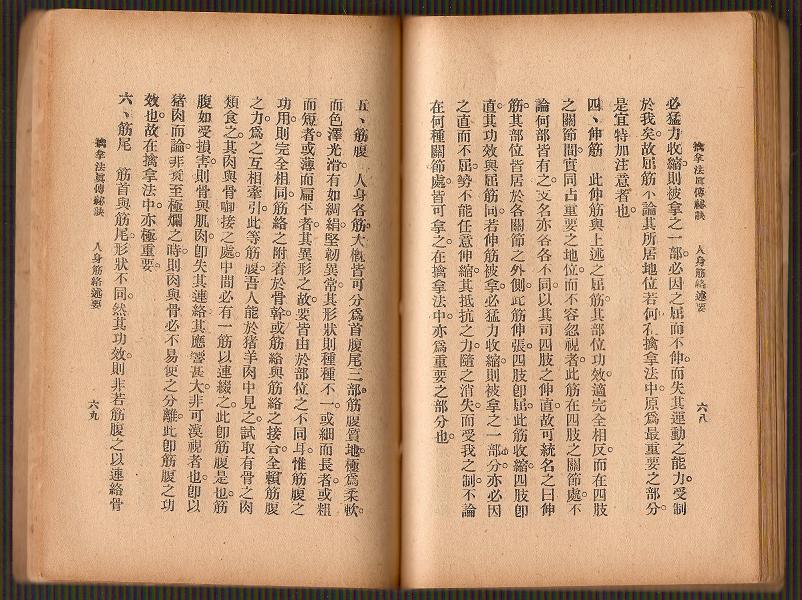 擒拿法眞傳秘訣　人身筋絡述要　六八
必猛力收縮則被拿之一部必因之屈而不伸而失其運動之能力。受制
於我矣。故屈筋不論其所居地位若何。在擒拿法中。原爲最重要之部分。
是宜特加注意者也。
四、伸筋　此伸筋與上述之屈筋其部位功效適完全相反。而在四肢
之關節間實同占重要之地位。而不容忽視者。此筋在四肢之關節處。不
論何部皆有之。支名亦各各不同。以其司四肢之伸直。故可統名之曰伸
筋。其部位皆居於各關節之外側。此筋伸張。四肢卽屈。此筋收縮。四肢卽
直。其功效與屈筋同。若伸筋被拿。必猛力收縮。則被拿之一部分。亦必因
之直而不屈。勢不能任意伸縮。其抵抗之力。隨之消失。而受我之制。不論
在何種關節處。皆可拿之。在擒拿法中。亦爲重要之部分也。
五、筋腹　人身各筋。大槪皆可分爲首腹尾三部。筋腹質地。極爲柔軟。
而色澤光滑。有如綢絹。堅韌異常。其形狀則種種不一。或細而長者。或粗
而短者。或薄而扁平者。其異形之故。要皆由於部位之不同耳。惟筋腹之
功用。則完全相同。筋絡之附着於骨幹。或筋絡與筋絡之接合。全賴筋腹
之力。爲之互相牽引。此等筋腹。吾人能於猪羊肉中見之。試取有骨之肉
類食之。其肉與骨啣接之處。中間必有一筋以連綴之。此卽筋腹是也。筋
腹如受損害。則骨與肌肉卽失其連絡。其應響甚大。非可漠視者也。卽以
猪肉而論。非煑至極爛之時。則肉與骨必不易使之分離。此卽筋腹之功
效也。故在擒拿法中。亦極重要。
六、筋尾　筋首與筋尾。形狀不同。然其功效。則非若筋腹之以連絡骨
擒拿法眞傳秘訣　人身筋絡述要　六九